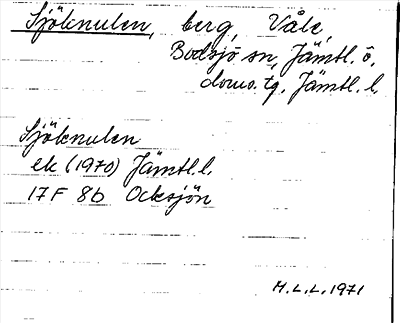 Sjöknulen, berg, Våle,
Bodsjö sn, Jämtl. ö.
doms. tg. Jämtl. l.
Sjöknulen
ek (1970) Jämtl. l.
17F 8b Ocksjön
M.L.L. 1971